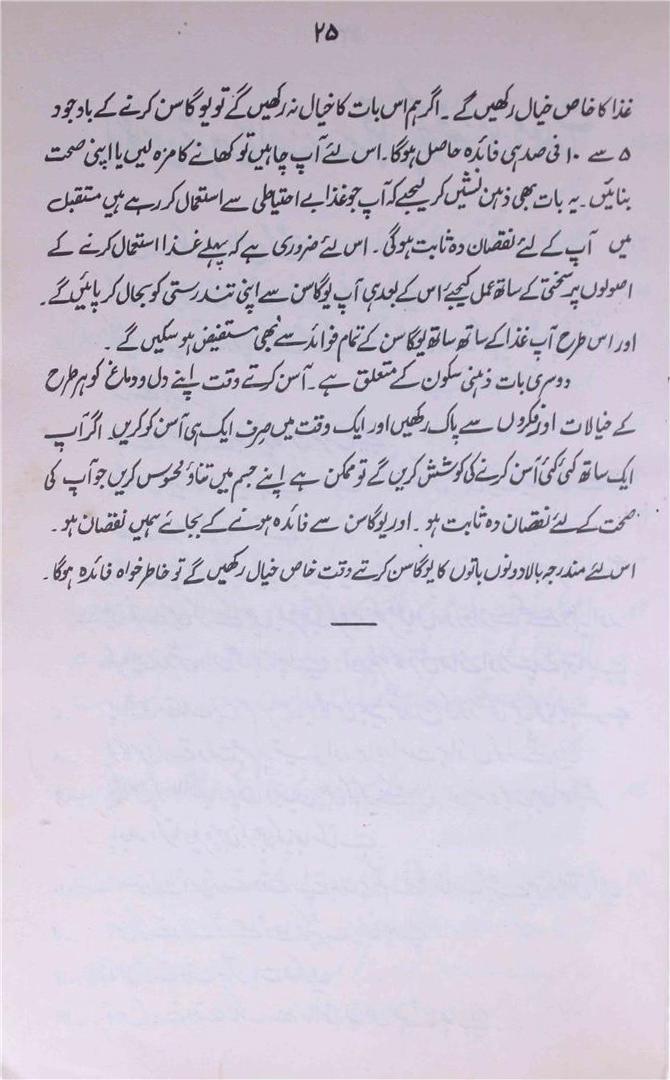 ۲۵
غذا کا خاص خیال رکھیں گے ۔ اگر ہم اس بات کا خیال نہ رکھیں گے تو یوگاسن کرنے کے باوجود
۵ سے ۱۰ فی صد ہی فائدہ حاصل ہوگا۔ اس لئے آپ چاہیں تو کھانے کا مزہ لیں یا اپنی صحت
بنائیں ۔ یہ بات بھی ذہن نشیں کر لیجیے کہ آپ جو غذا بے احتیاطی سے استعمال کر رہے ہیں مستقبل
میں آپ کے لئے نقصان دہ ثابت ہوگی ۔ اس لئے ضروری ہے کہ پہلے غذا استعمال کرنے کے
اصولوں پر سختی کے ساتھ عمل کیجیے اس کے بعد ہی آپ یوگاسن سے اپنی تندرستی کو بحال کر پائیں گے ۔
اور اس طرح آپ غذا کے ساتھ ساتھ یوگاسن کے تمام فوائد سے بھی مستفیض ہو سکیں گے ۔
دوسری بات ذہنی سکون کے متعلق ہے ۔ آسن کرتے وقت اپنے دل و دماغ کو ہر طرح
کے خیالات اور فکروں سے پاک رکھیں اور ایک وقت میں صرف ایک ہی آسن کو کریں۔ اگر آپ
ایک ساتھ کئی کئی آسن کرنے کی کوشش کریں گے تو ممکن ہے اپنے جسم میں تناؤ محسوس کریں جو آپ کی
صحت کے لئے نقصان دہ ثابت ہو ۔ اور یوگاسن سے فائدہ ہونے کے بجائے ہمیں نقصان ہو ۔
اس لئے مندرجہ بالا دونوں باتوں کا یوگاسن کرتے وقت خاص خیال رکھیں گے تو خاطر خواہ فائدہ ہوگا ۔